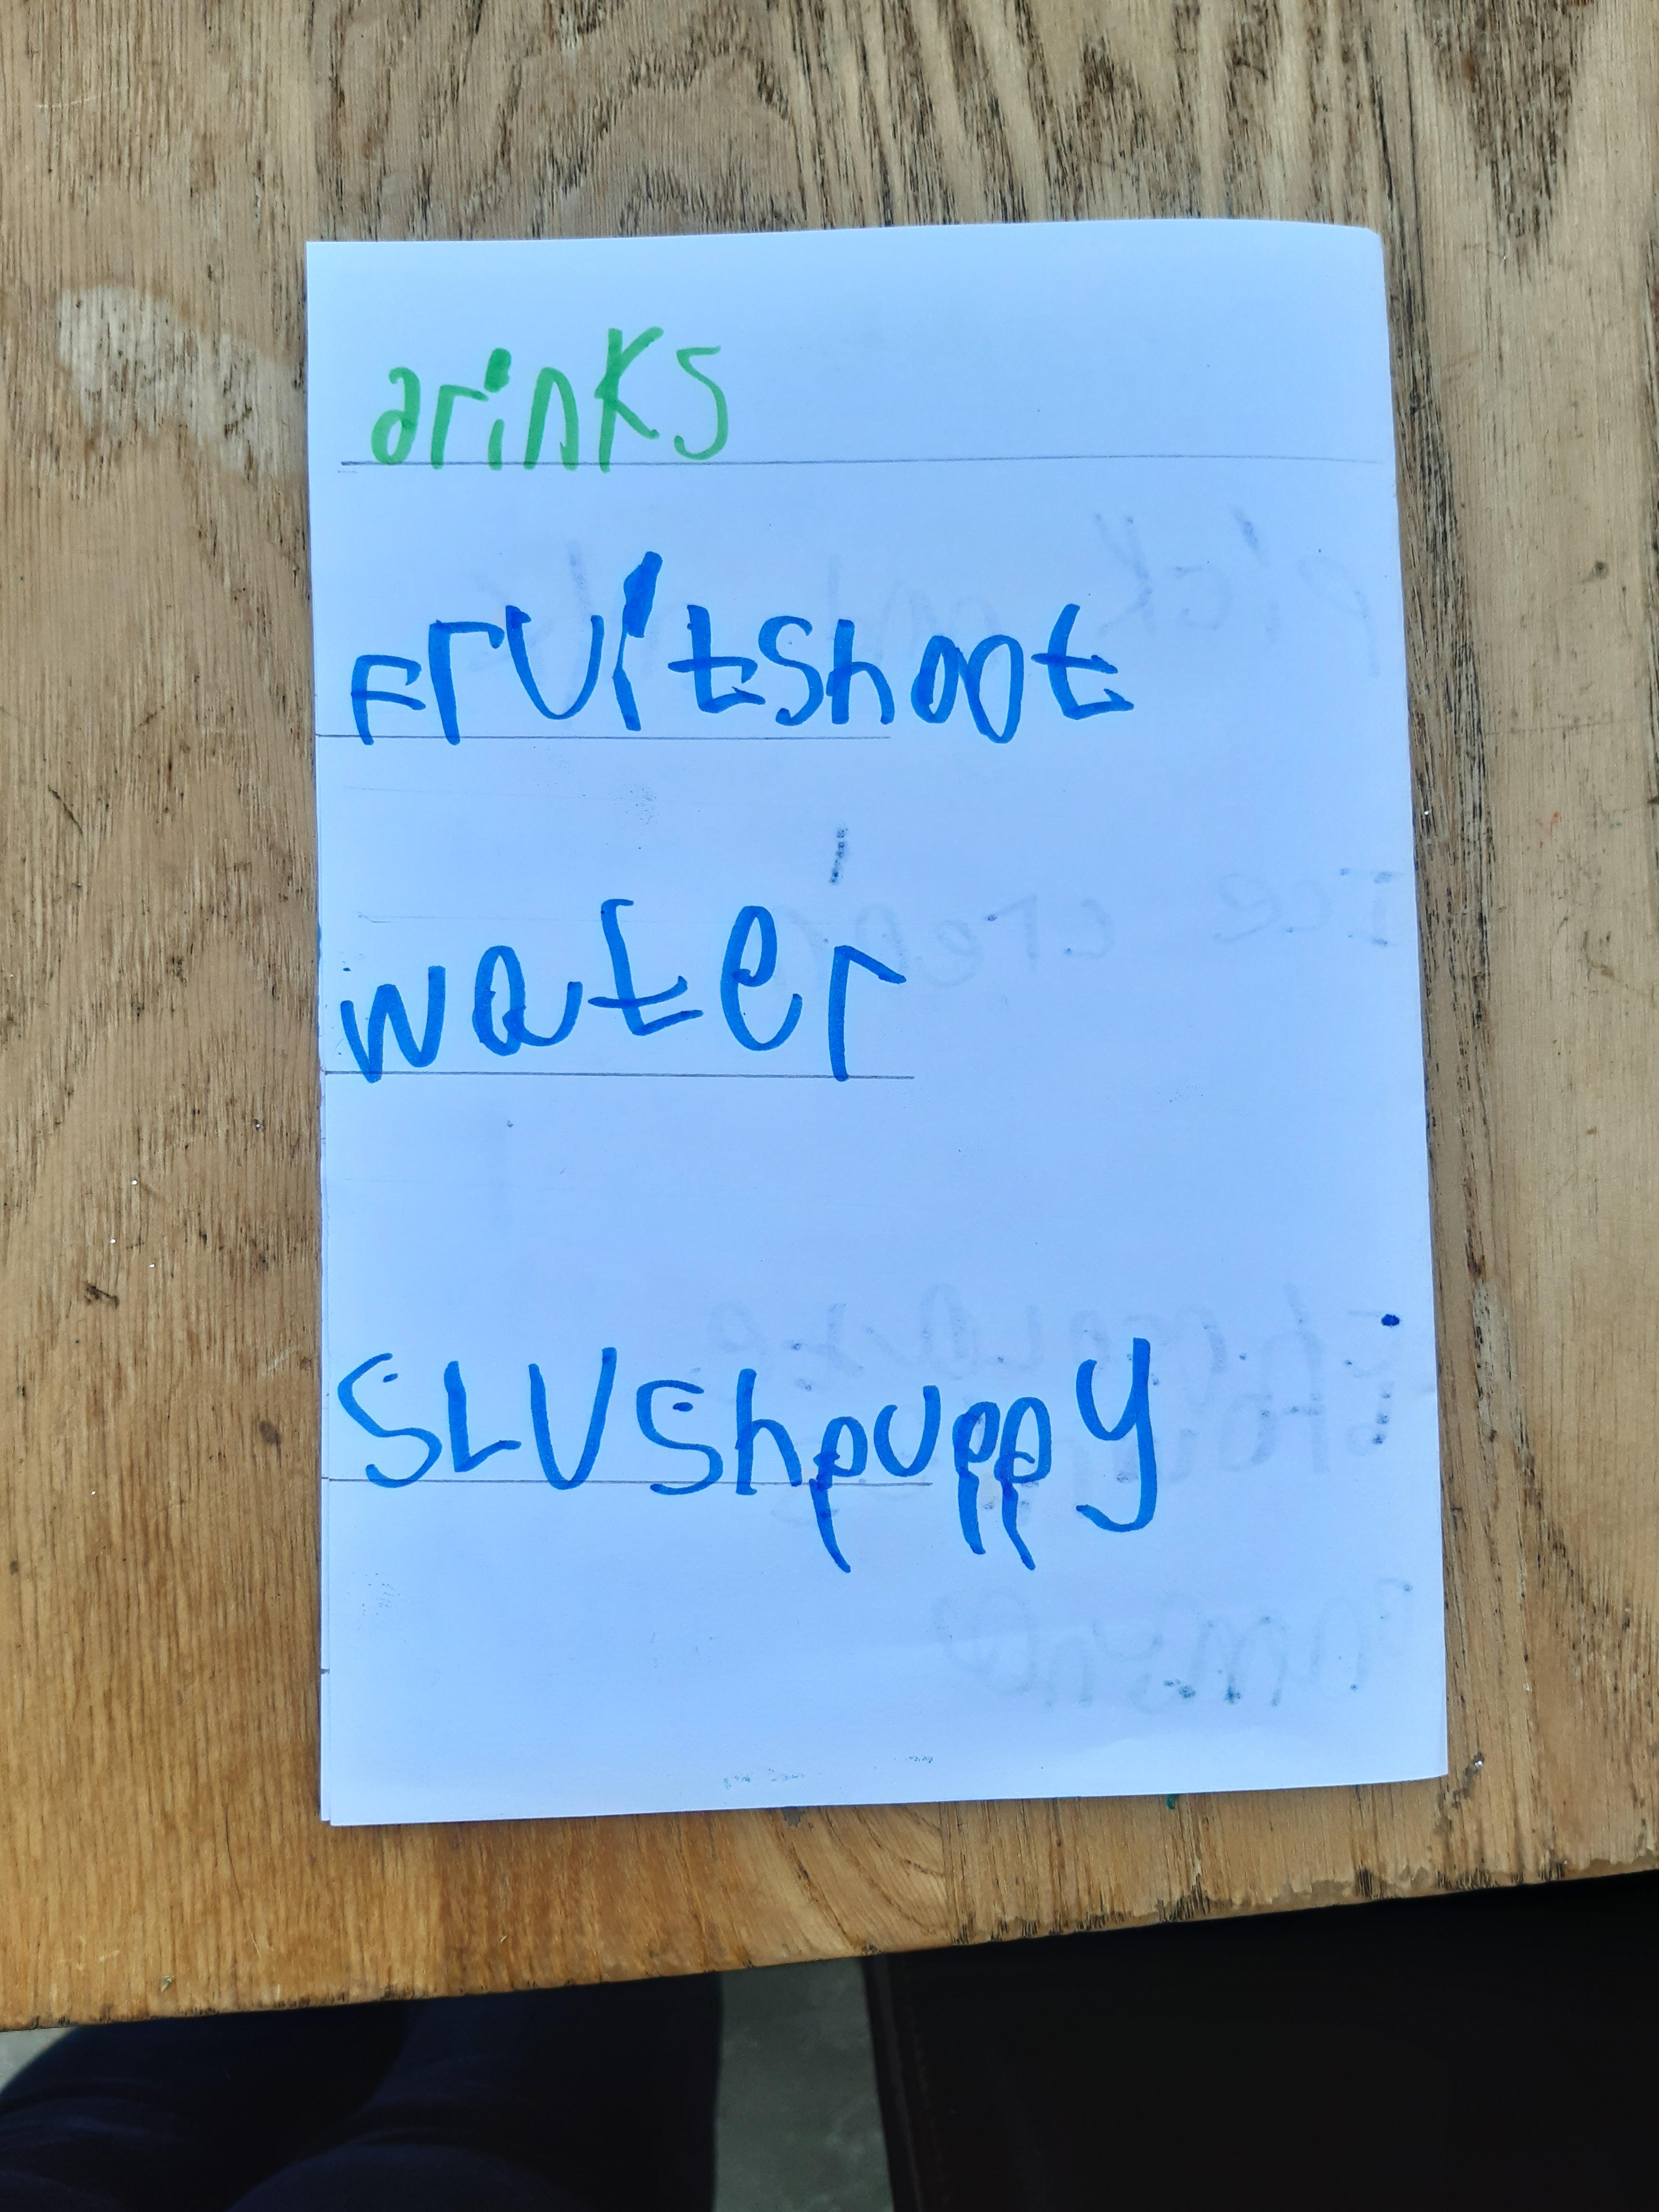 drinks
Fruitshoot
water
SLUShpuppy